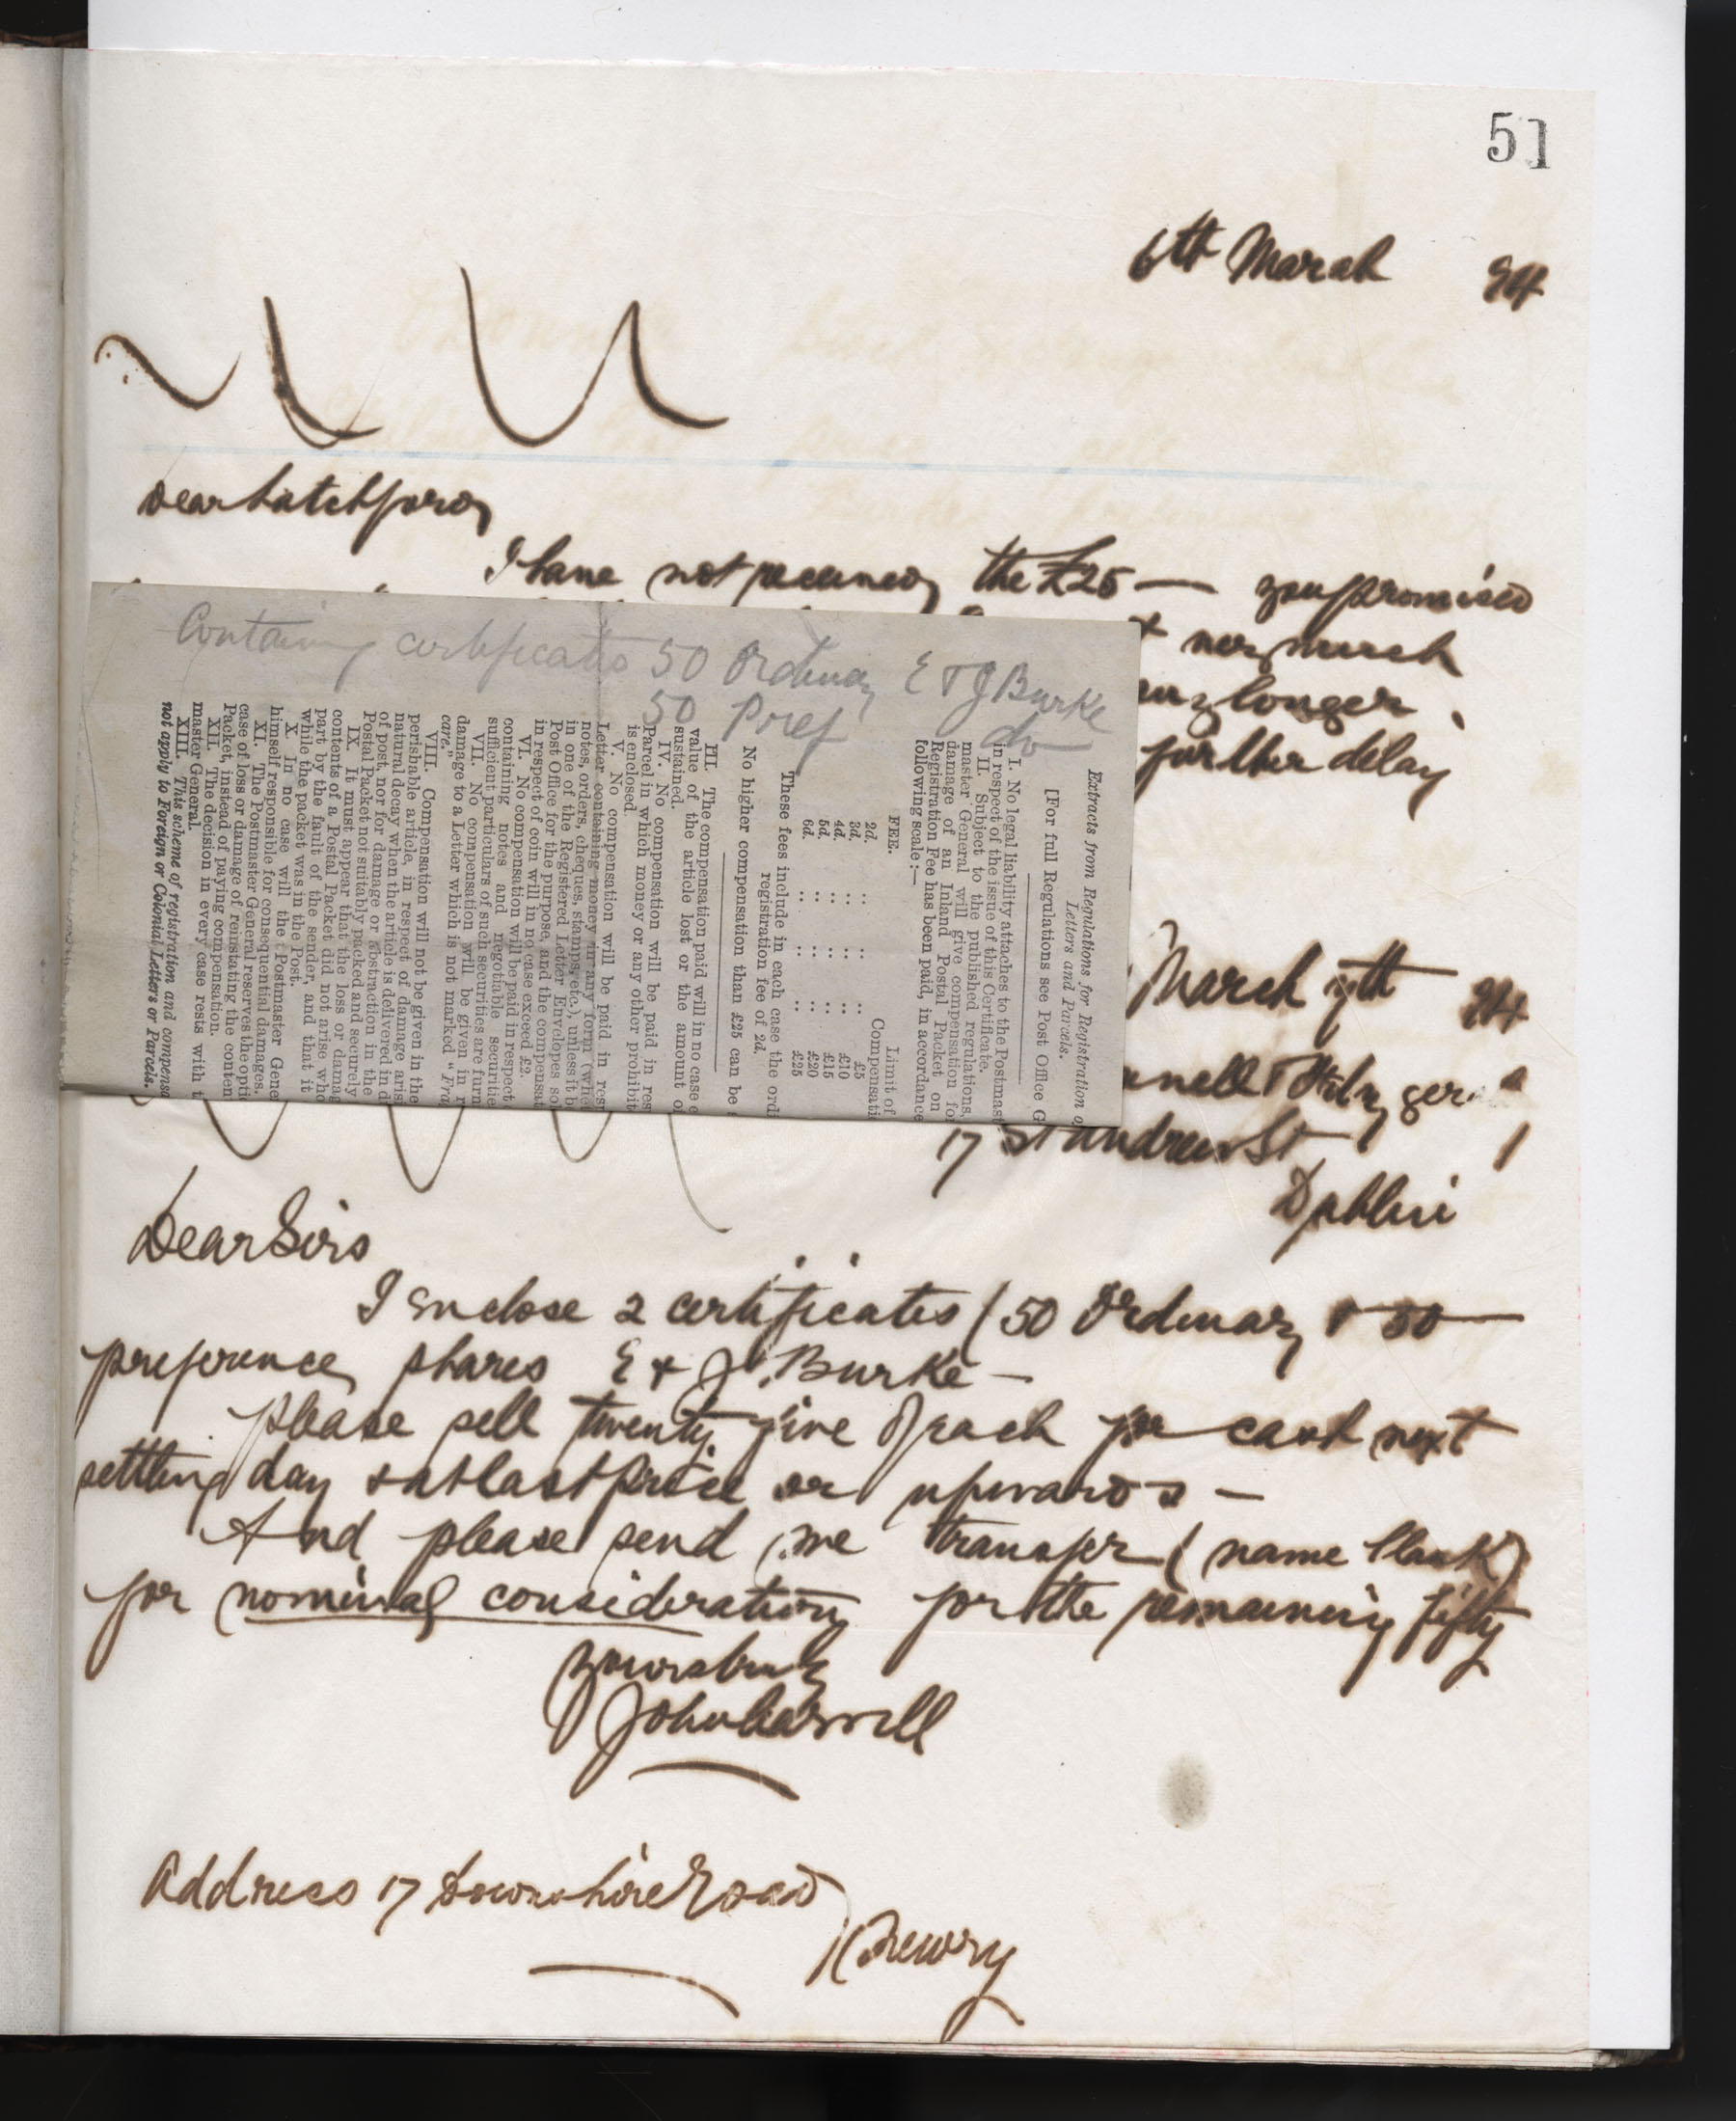 51
6th March 94
Dear Latchford
I have not received the £25 — you promised
nor much
any longer.
further delay
Containing certificates 50 Ordinary E & J Burke
50 Pref do
Extracts from Regulations for Registration o
Letters and Parcels.
[For full Regulations see Post Office G
I. No legal liability attaches to the Postmast
in respect of the issue of this Certificate.
II. Subject to the published regulations,
master General will give compensation fo
damage of an Inland Postal Packet on
Registration Fee has been paid, in accordance
following scale:—
FEE. Limit of Compensati
2d. .. .. .. £5
3d. .. .. .. £10
4d. .. .. .. £15
5d. .. .. .. £20
6d. .. .. .. £25
These fees include in each case the ord
registration fee of 2d.
No higher compensation than £25 can be
III. The compensation paid will in no case e
value of the article lost or the amount o
sustained.
IV. No compensation will be paid in res
Parcel in which money or any other prohibit
is enclosed.
V. No compensation will be paid in resp
Letter containing money in any form (whet
notes, orders, cheques, stamps, etc.), unless it b
in one of the Registered Letter Envelopes so
Post Office for the purpose, and the compensat
in respect of coin will in no case exceed £2.
VI. No compensation will be paid in respect
containing notes and negotiable securitie
sufficient particulars of such securities are furn
VII. No compensation will be given in r
damage to a Letter which is not marked "Fra
care."
VIII. Compensation will not be given in the
perishable article, in respect of damage aris
natural decay when the article is delivered in d
of post, nor for damage or abstraction in the
Postal Packet not suitably packed and securely
IX. It must appear that the loss or damag
contents of a Postal Packet did not arise who
part by the fault of the sender, and that it
while the packet was in the Post.
X. In no case will the Postmaster Gene
himself responsible for consequential damages.
XI. The Postmaster General reserves the opti
case of loss or damage of reinstating the conten
Packet, instead of paying compensation.
XII. The decision in every case rests with t
master General.
XIII. This scheme of registration and compensa
not apply to Foreign or Colonial Letters or Parcels.
March 7th 94
17 St Andrew St
Dublin
Dear Sirs
I enclose 2 certificates (50 Ordinary & 50 —
preference shares E & J. Burke —
please sell twenty five of each for cash next
settling day & at last price or upwards —
And please send me transfer (name blank)
for nominal consideration for the remaining fifty
Yours truly
John Carvill
Address 17 Downshire Road
Newry